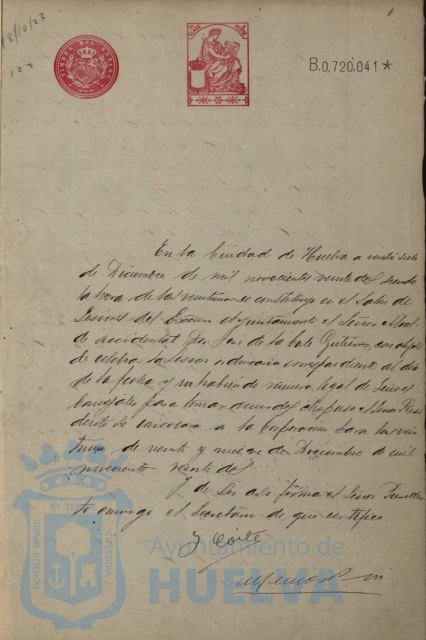 18/10/22
1
B.0.720.041*
En la Ciudad de Huelva a veinte siete
de Diciembre de mil novecientos veinte dos siendo
la hora de las veintiuna se constituyo en el Salon de
Sesiones del Excmo Ayuntamiento el Señor Alcal
de accidental Don José de la Corte Gutierrez con objeto
de celebrar la Sesion ordinaria correspondiente al dia
de la fecha y no habiendo numero legal de Señores
Concejales para tomar acuerdos dispuso el Señor Presi
dente se convocara a la Corporacion para las vein
tiuna de veinte y nueve de Diciembre de mil
novecientos veinte dos
Y de ser asi firma el Señor Presiden
te conmigo el Secretario de que certifico
J Corte
Ayuntamiento de
HUELVA
PORTUS MARIS
ET TERRAE
CUSTODIA